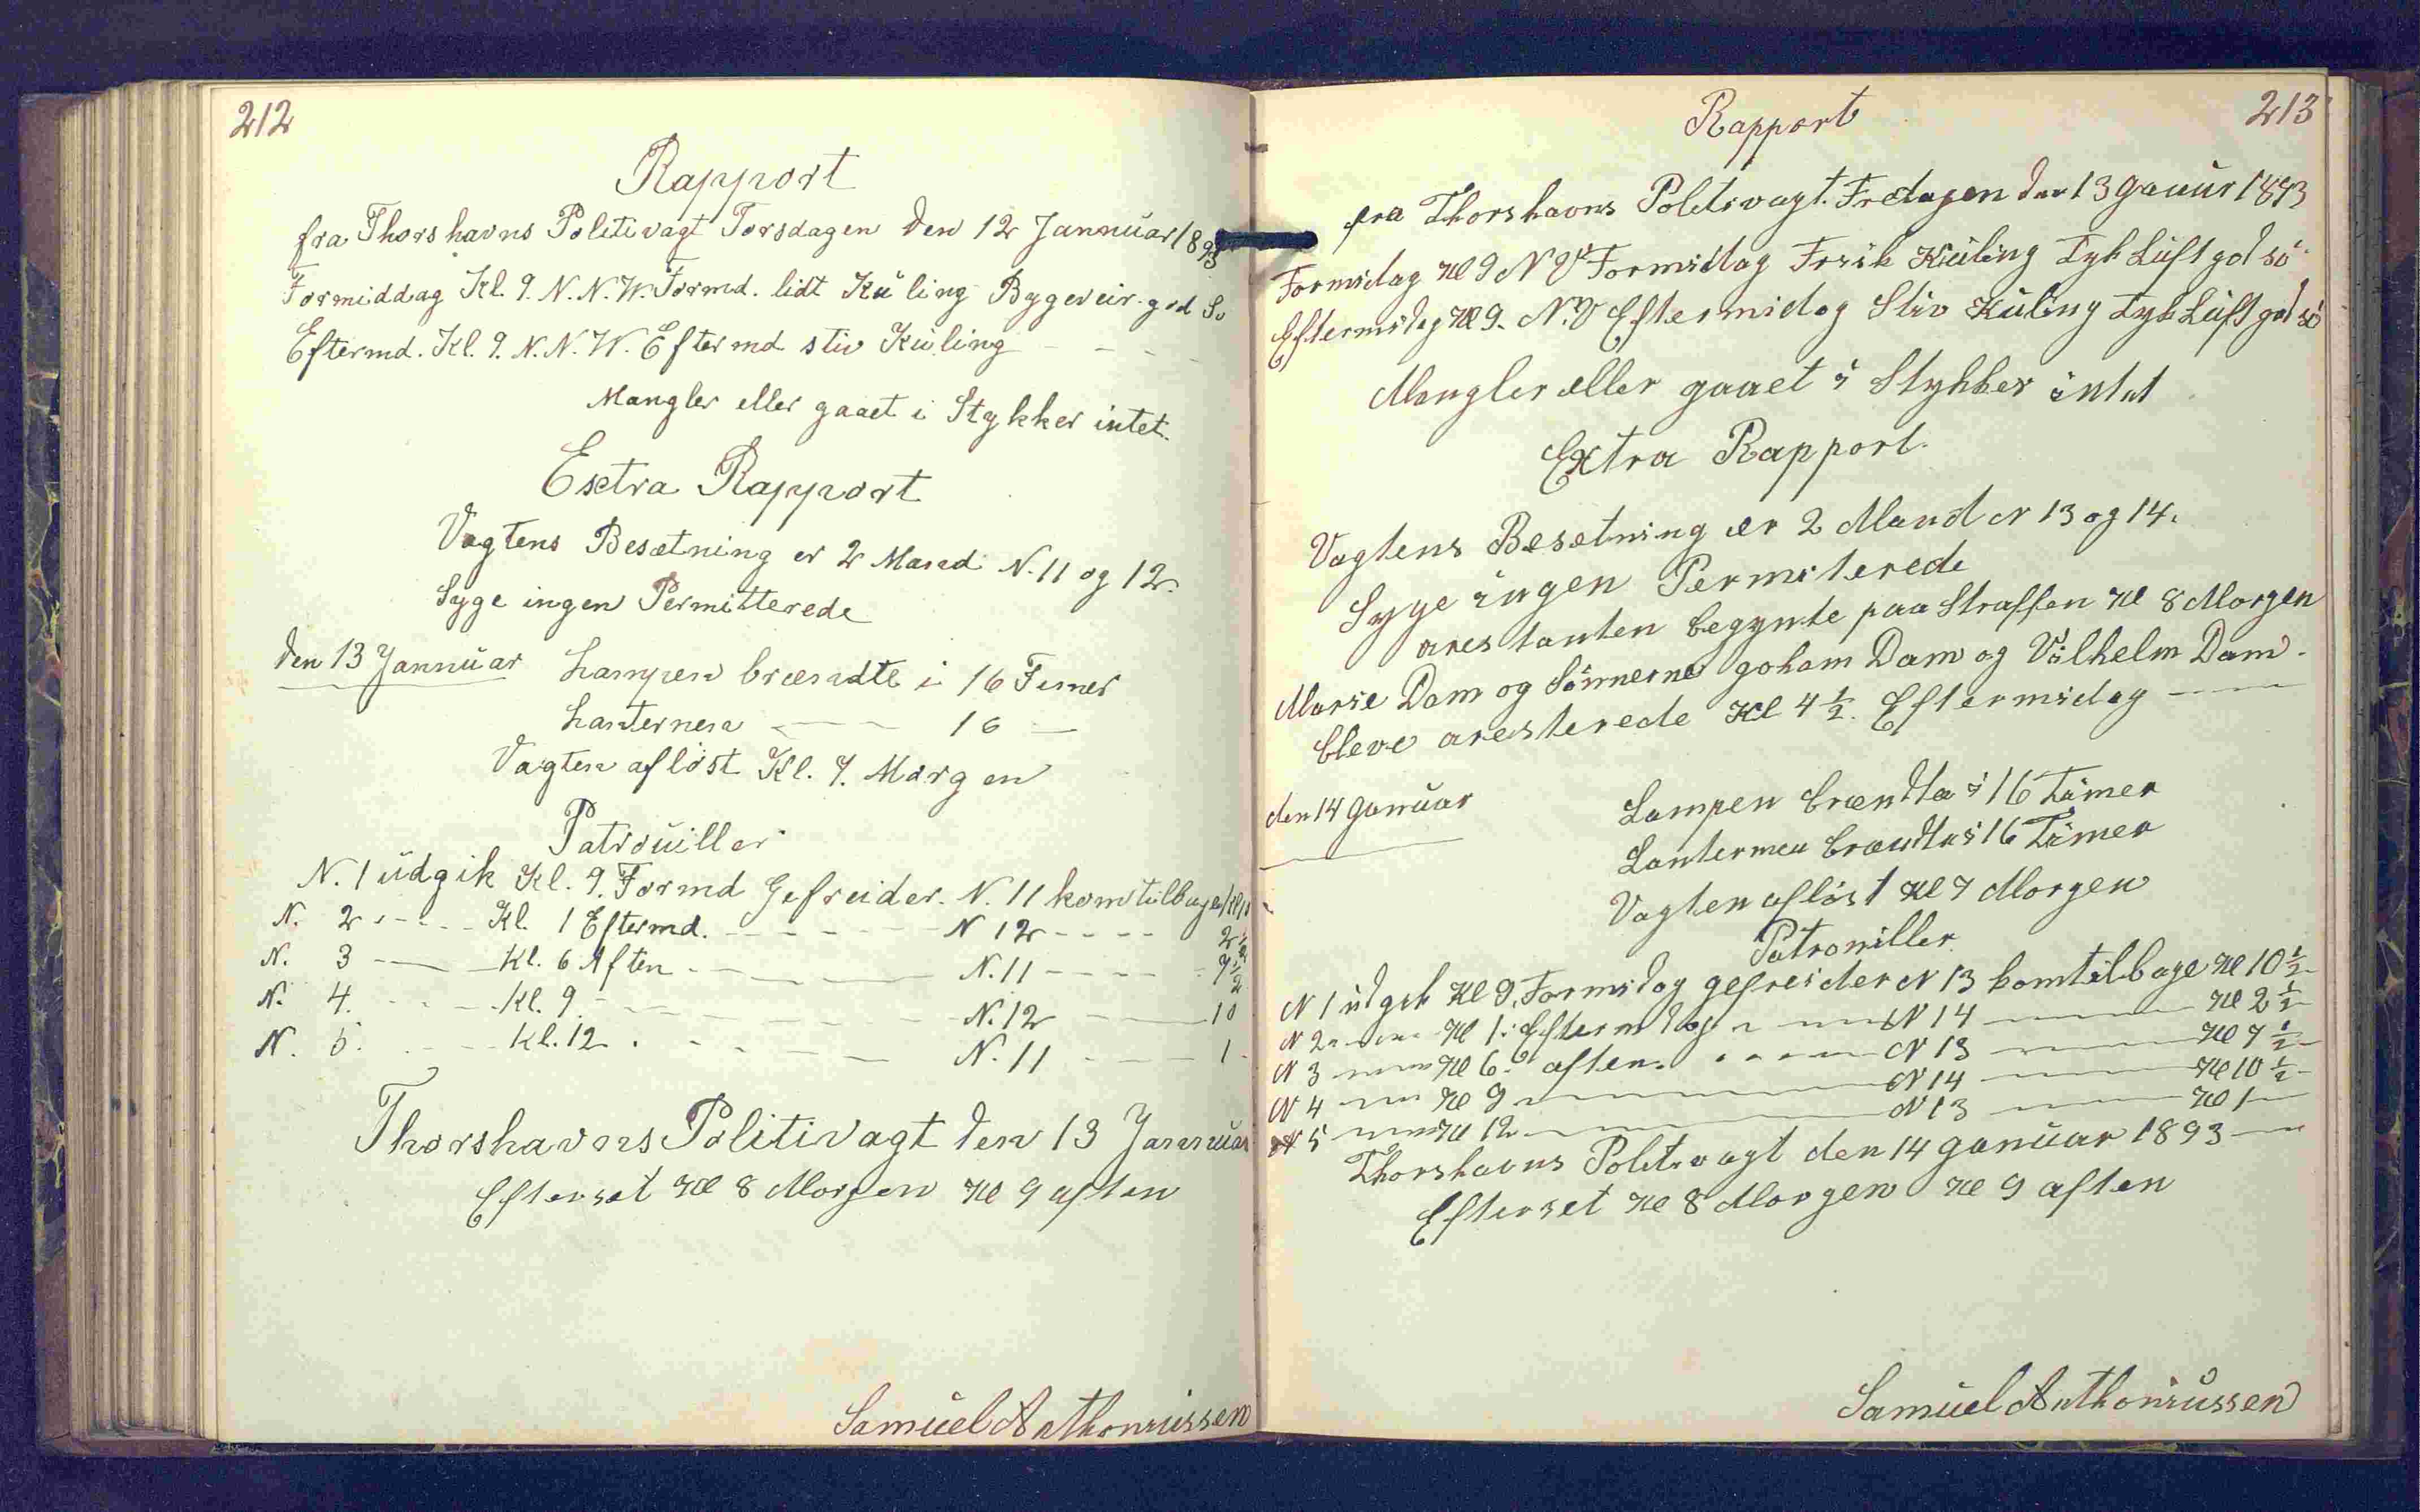 212
Rapport
fra Thorshavns Politivagt Torsdagen den 12 Jannuar 1893
Formiddag Kl. 9. N. N. W. Formd. lidt Kuling Bygeveir god Sö
Eftermd. Kl. 9. N. N. W. Eftermd stiv Kuling - - - -
Mangler eller gaaet i Stykker intet.
Exstra Rapport
Vagtens Besætning er 2 Mand N. 11 og 12.
Syge ingen Permitterede
den 13 Jannuar Lampen brændte i 16 Timer
Lanternen — 16 —
Vagten aflöst Kl. 7. Morgen
Patrouiller
N. 1 udgik Kl. 9. Formd Gefreider. N. 11 kom tilbage Kl
N. 2 - - - Kl. 1 Eftermd. - - - - N 12 - - - - 2 1/2
N. 3 — Kl. 6 Aften - — N. 11 - - - - 7 1/2
N. 4. - - - Kl. 9 - - - - N. 12 — 10
N. 5. - - - Kl. 12 . - - - N. 11 - - - 1 -
Thorshavns Politivagt den 13 Jannuar
Efterset Kl 8 Morgen Kl 9 aften
Samuel Anthoniussen
213
Rapport
fra Thorshavns Politivagt. Fredagen den 13 Januur 1893
Formidag Kl 9 N V Formidag Frisk Kuling Tyk Luft god sö
Eftermidag Kl 9. N.V Eftermidag Stiv Kuling Tyk Luft god sö
Mangler eller gaaet i Stykker intet
Extra Rapport.
Vagtens Besetning er 2 Mand N 13 og 14.
Syge ingen Permiterede
arestanten begynte paa Straffen Kl 8 Morgen
Marie Dam og Sönnerne Joham Dam og Vilhelm Dam -
bleve aresterede Kl 4 1/2. Eftermidag —
den 14 Januar Lampen brændte i 16 Timer
Lanternen brændte i 16 Timer
Vagten aflöst Kl 7 Morgen
Patroniller
N 1 udgik Kl 9. Formidag gefreider N 13 kom tilbage Kl 10 1/2
N 2 - - - Kl 1. Eftermidag - - - N 14 — Kl 2 1/2
N 3 — Kl 6. aften. - - - N 13 — Kl 7 1/2
N 4 — Kl 9 — N 14 — Kl 10 1/2
N 5 — Kl 12 — N 13 — Kl 1 —
Thorshavns Politivagt den 14 Januar 1893 —
Efterset Kl 8 Morgen Kl 9 aften
Samuel Anthoniussen